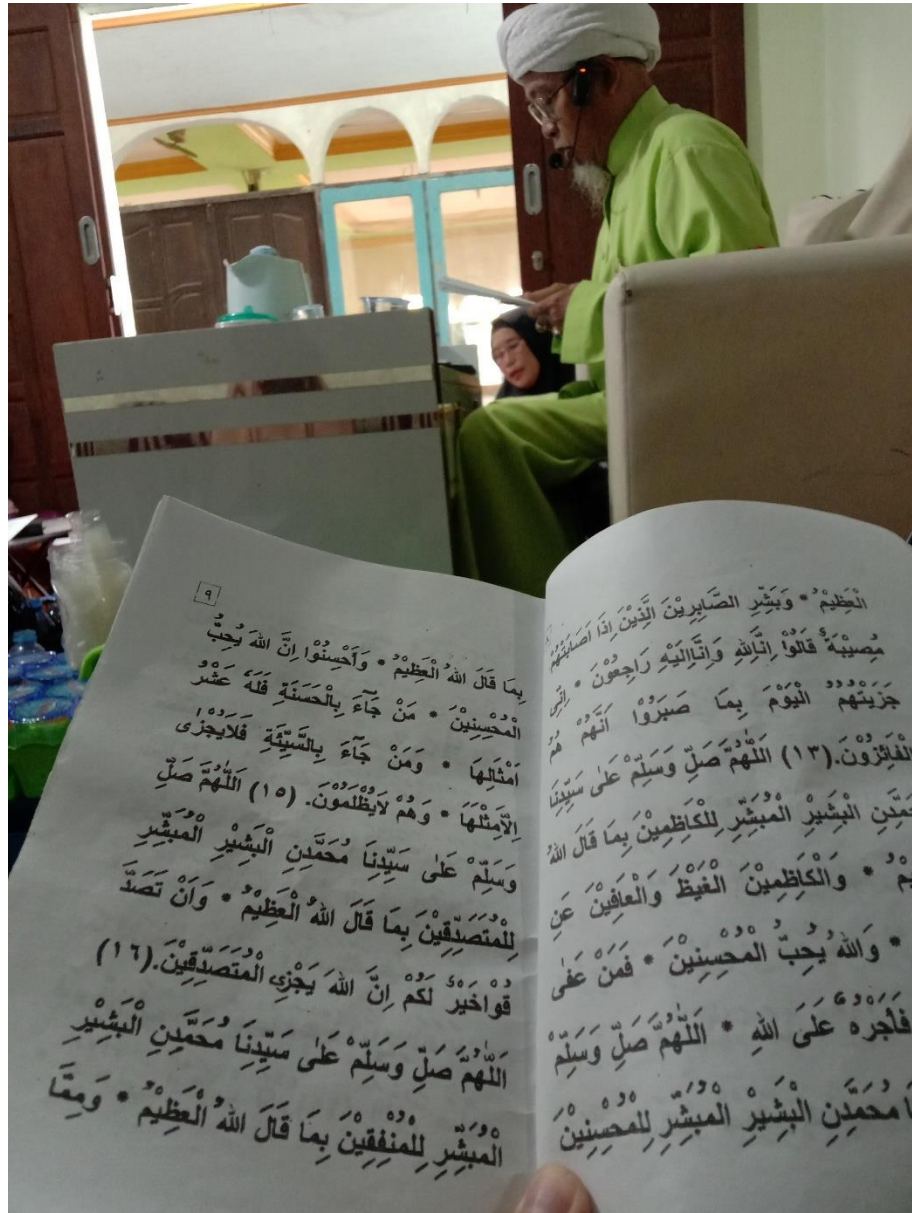 الْعَظِيْمُ * وَبَشِّرِ الصَّابِرِيْنَ الَّذِيْنَ اِذَا اَصَابَتْهُمْ
مُصِيْبَةٌ قَالُوْا اِنَّالِلّٰهِ وَاِنَّااِلَيْهِ رَاجِعُوْنَ * اِنِّى
جَزَيْتُهُمُ الْيَوْمَ بِمَا صَبَرُوْا اَنَّهُمْ هُمُ
الْفَائِزُوْنَ.(١٣) اَللّٰهُمَّ صَلِّ وَسَلِّمْ عَلٰى سَيِّدِنَا
الْبَشِيْرِ الْمُبَشِّرِ لِلْكَاظِمِيْنَ بِمَا قَالَ اللهُ
* وَالْكَاظِمِيْنَ الْغَيْظَ وَالْعَافِيْنَ عَنِ
* وَاللهُ يُحِبُّ الْمُحْسِنِيْنَ * فَمَنْ عَفٰى
فَأَجْرُهُ عَلَى اللهِ * اَللّٰهُمَّ صَلِّ وَسَلِّمْ
مُحَمَّدِنِ الْبَشِيْرِ الْمُبَشِّرِ لِلْمُحْسِنِيْنَ
٩
بِمَا قَالَ اللهُ الْعَظِيْمُ * وَأَحْسِنُوْا اِنَّ اللهَ يُحِبُّ
الْمُحْسِنِيْنَ * مَنْ جَآءَ بِالْحَسَنَةِ فَلَهُ عَشْرُ
اَمْثَالِهَا * وَمَنْ جَآءَ بِالسَّيِّئَةِ فَلَايُجْزٰى
اِلَّامِثْلَهَا * وَهُمْ لَايُظْلَمُوْنَ. (١٥) اَللّٰهُمَّ صَلِّ
وَسَلِّمْ عَلٰى سَيِّدِنَا مُحَمَّدِنِ الْبَشِيْرِ الْمُبَشِّرِ
لِلْمُتَصَدِّقِيْنَ بِمَا قَالَ اللهُ الْعَظِيْمُ * وَاَنْ تَصَدَّ
قُوْاخَيْرٌ لَكُمْ اِنَّ اللهَ يَجْزِى الْمُتَصَدِّقِيْنَ.(١٦)
اَللّٰهُمَّ صَلِّ وَسَلِّمْ عَلٰى سَيِّدِنَا مُحَمَّدِنِ الْبَشِيْرِ
الْمُبَشِّرِ لِلْمُنْفِقِيْنَ بِمَا قَالَ اللهُ الْعَظِيْمُ * وَمِمَّا